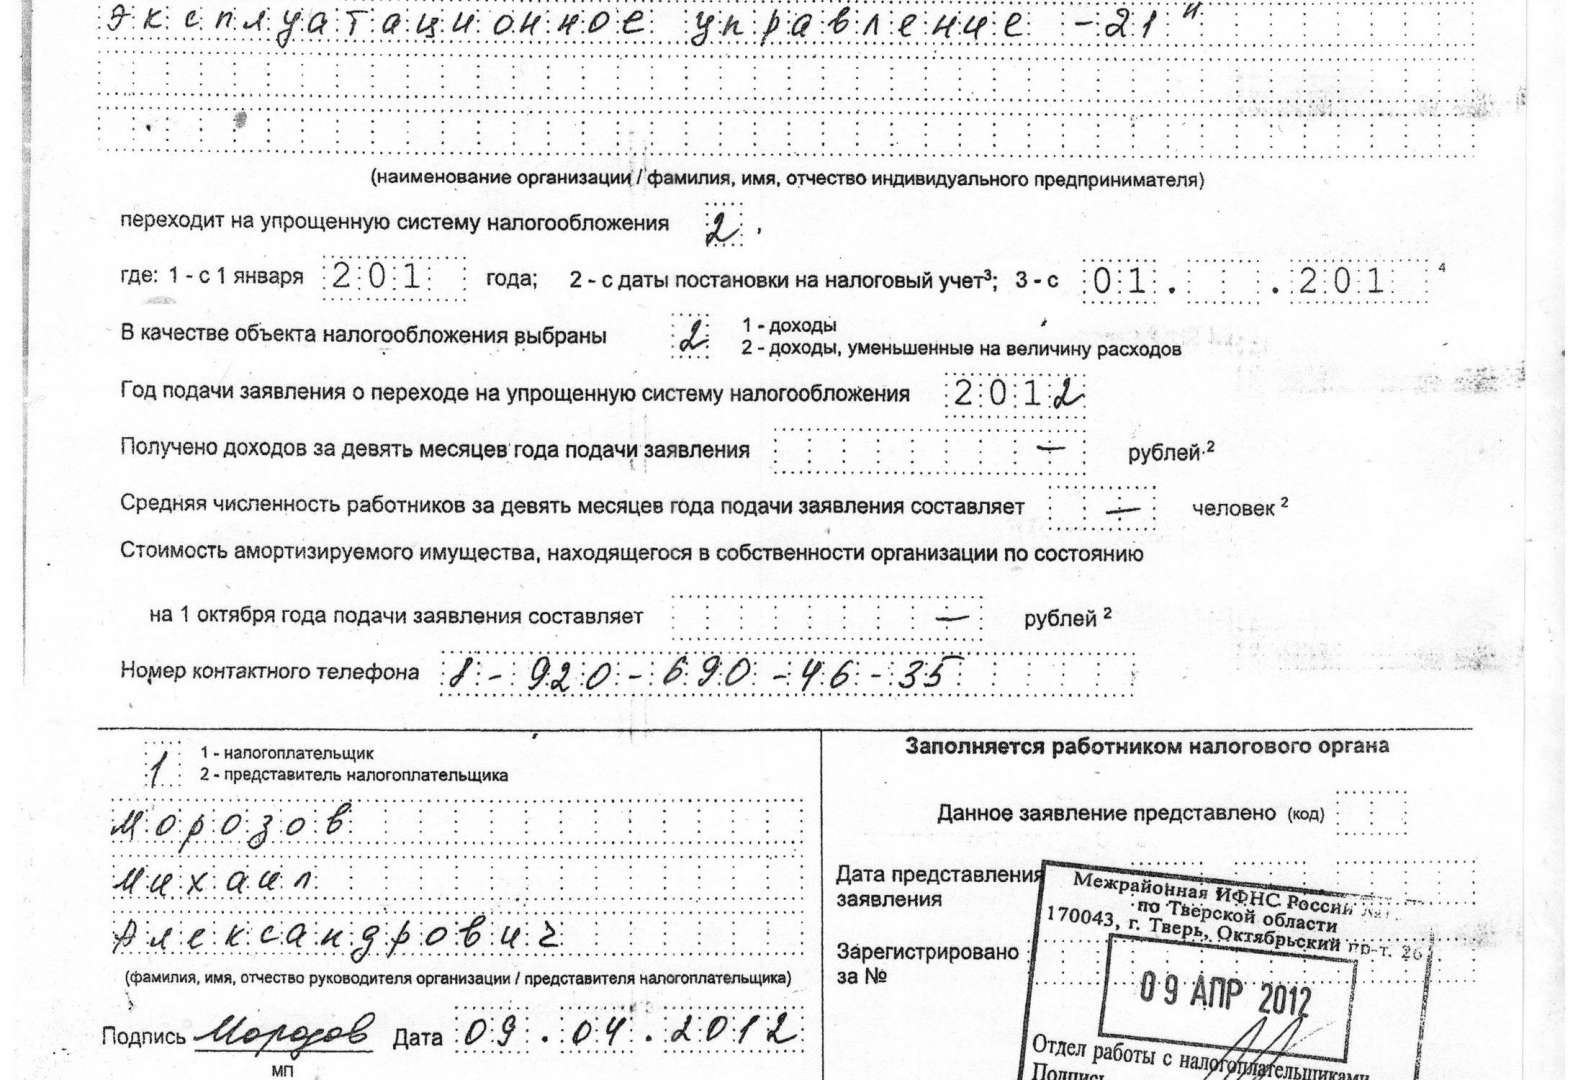 Эксплуатационное управление -21"
(наименование организации / фамилия, имя, отчество индивидуального предпринимателя)
переходит на упрощенную систему налогообложения 2 ,
где: 1 - с 1 января 201 года; 2 - с даты постановки на налоговый учет³; 3 - с 01. .201 ⁴
В качестве объекта налогообложения выбраны 2 1 - доходы
2 - доходы, уменьшенные на величину расходов
Год подачи заявления о переходе на упрощенную систему налогообложения 2012
Получено доходов за девять месяцев года подачи заявления — рублей ²
Средняя численность работников за девять месяцев года подачи заявления составляет — человек ²
Стоимость амортизируемого имущества, находящегося в собственности организации по состоянию
на 1 октября года подачи заявления составляет — рублей ²
Номер контактного телефона 8-920-690-46-35
1 1 - налогоплательщик
2 - представитель налогоплательщика
Морозов
Михаил
Александрович
(фамилия, имя, отчество руководителя организации / представителя налогоплательщика)
Подпись Морозов Дата 09.04.2012
МП
Заполняется работником налогового органа
Данное заявление представлено (код)
Дата представления
заявления
Зарегистрировано
за №
Межрайонная ИФНС России
по Тверской области
170043, г. Тверь, Октябрьский пр-т. 26
09 АПР 2012
Отдел работы с налогоплательщиками
Подпись